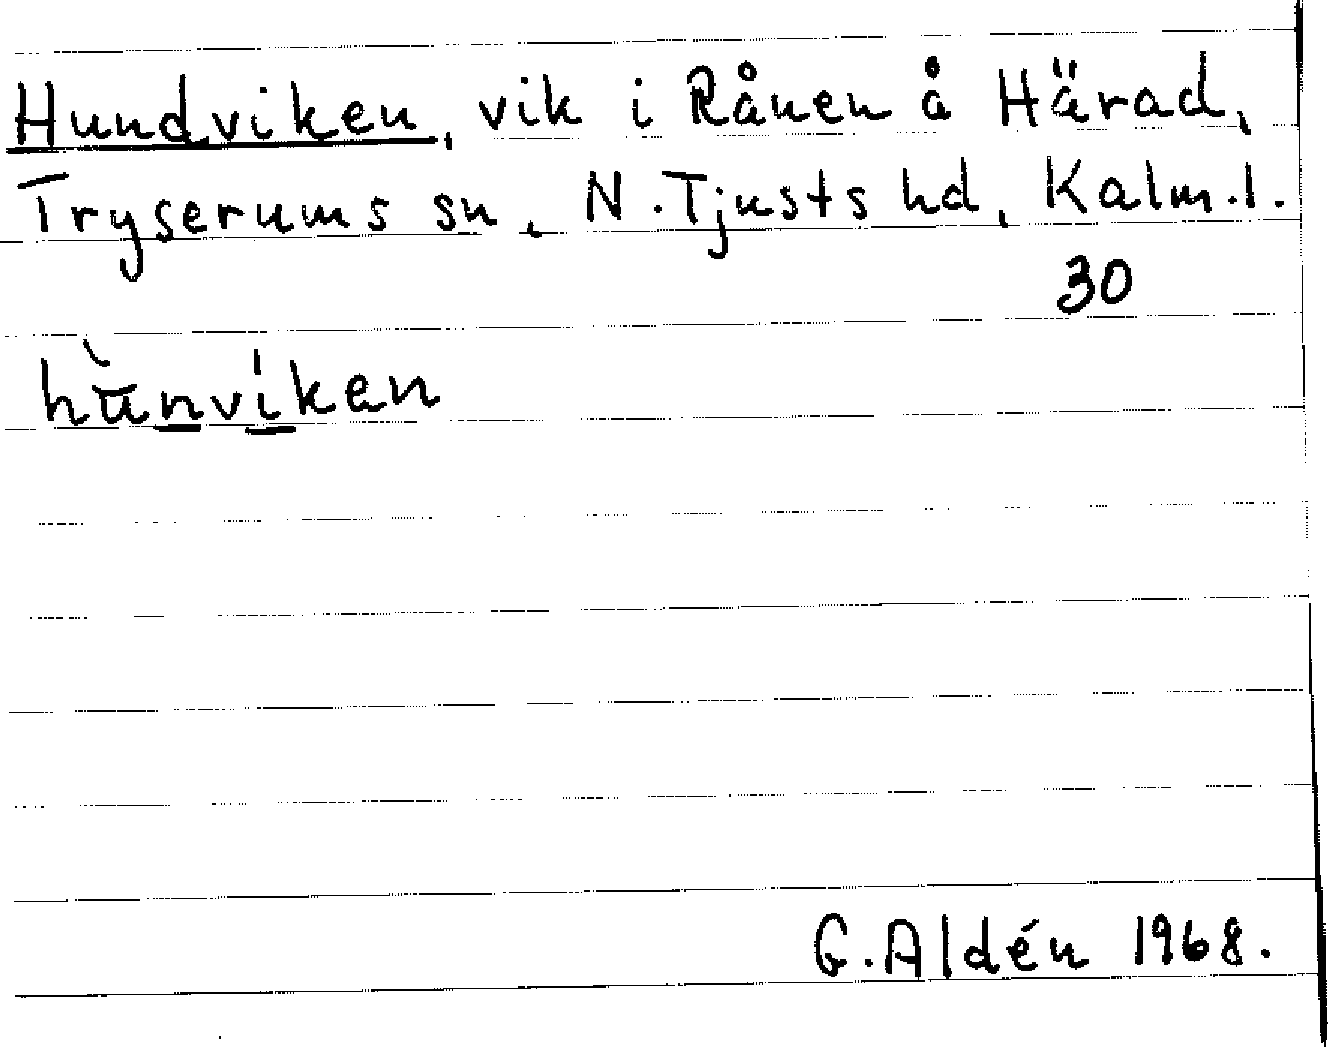 Hundviken, vik i Rånen å Härad,
Tryserums sn, N. Tjusts hd, Kalm. l.
30
hùnvíken
G. Aldén 1968.